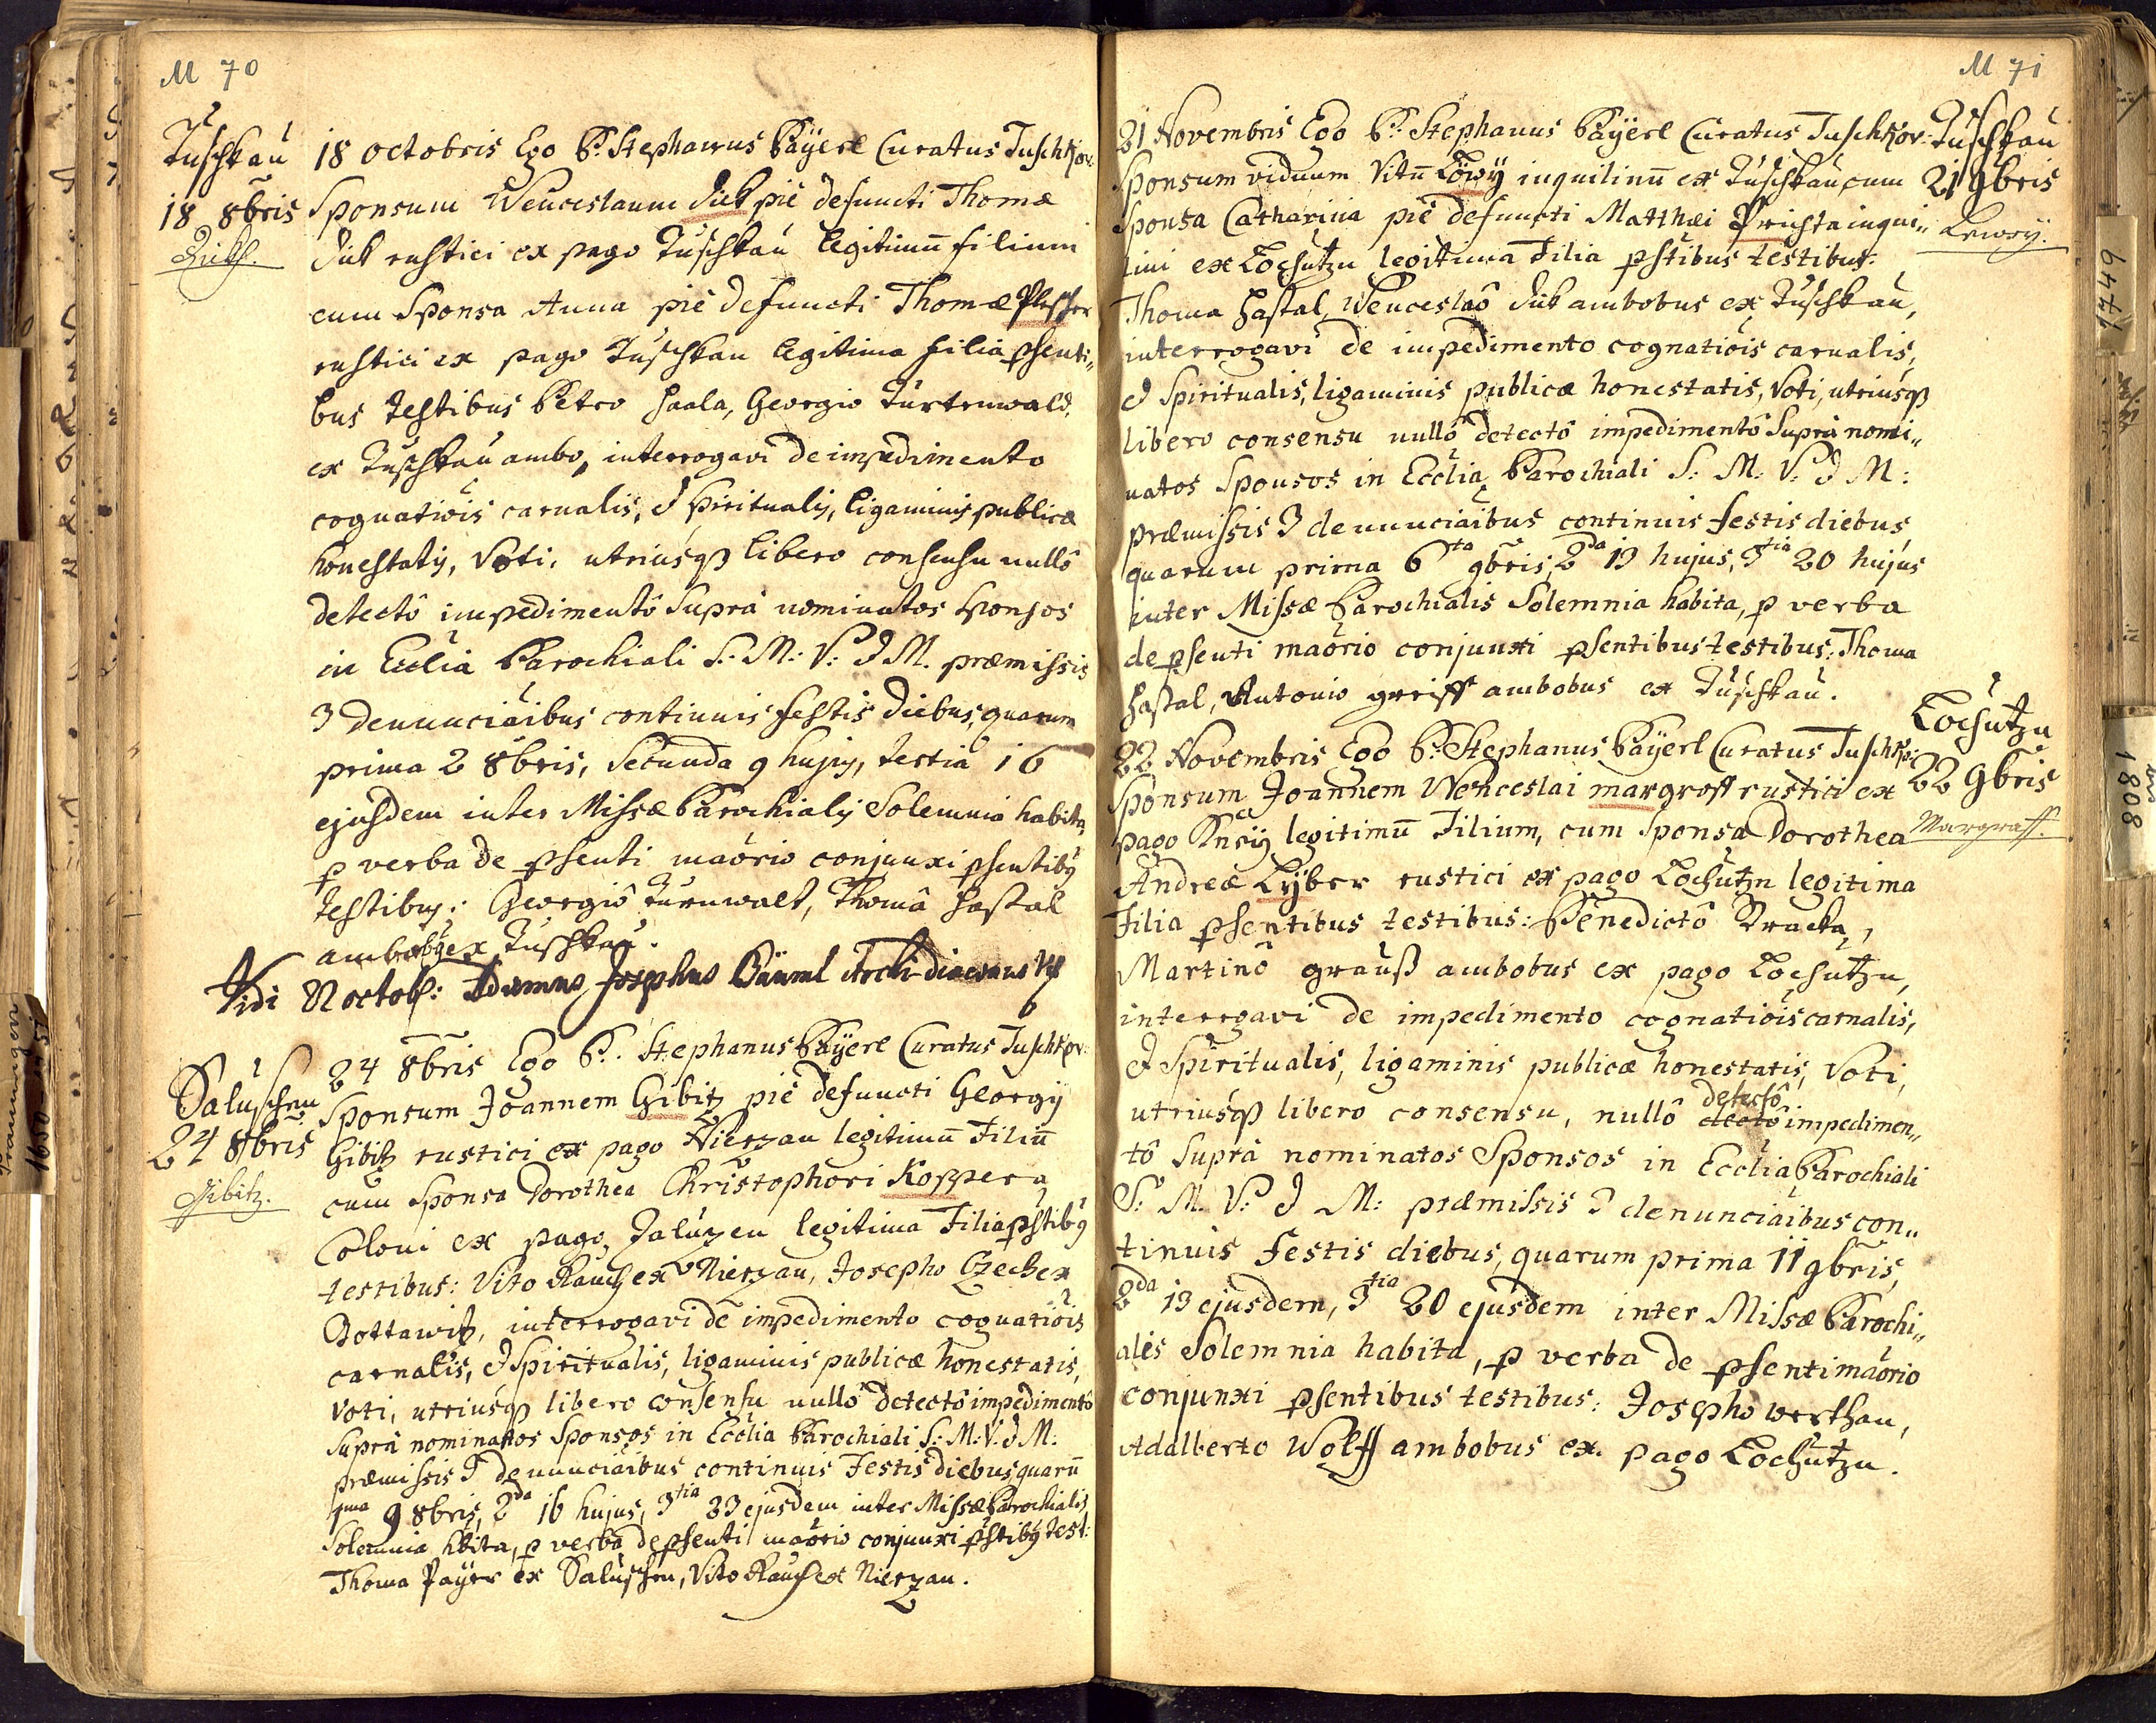 M 70
Tuschkau
18 8bris
18 octobris Ego P. Stephanus Bayerl Curatus Tuschkov:
Sponsum Wenceslaum Dick pie defuncti Thomæ
Dick rustici ex pago Tuschkau legitimū filium
cum Sponsa Anna pie defuncti Thomæ
rustici ex pago Tuschkau legitima filia psenti„
bus testibus Petro Haala, Georgio
ex Tuschkau ambo, interrogavi de impedimento
cognatiõis carnalis, & spiritualis, ligaminis publicæ
honestatis, Voti, utriusq libero consensu nullô
detectô impedimentô supra nominatos sponsos
in Ecclia Parochiali S. M: V: & M. præmissis
3 denunciãibus continuis festis diebus, quarum
prima 2 8bris, Secunda 9 hujus, tertia 16
ejusdem inter Missæ Parochialis Solemnia habita,
p verba de psenti maõrio conjunxi psentibus
testibus: Georgiô Turnwalt, Thomâ Hastal
ambobus ex Tuschkau.
Vidi octob: Adamus Josephus Bäuml Archidiaconus
Saluschen
24 8bris
Gibitz.
24 8bris Ego P. Stephanus Bayerl Curatus Tuschkov:
Sponsum Joannem Gibitz pie defuncti Georgij
Gibitz rustici ex pago Nierzau legitimū Filiū
cum Sponsa Dorothea Christophori Koppera
Coloni ex pago Zaluzen legitima Filia pstibus
testibus: Vito Rauch ex Nierzau, Josepho Czech ex
Dottawitz, interrogavi de impedimento cognatiõis
carnalis, & Spiritualis, ligaminis publicæ honestatis,
voti, utriusq libero consensu nullô detectô impedimentô
supra nominatos Sponsos in Ecclia Parochiali S: M: V: & M:
præmissis 3 denunciãibus continuis Festis diebus quarū
1ma 9 8bris, 2da 16 hujus, 3tia 23 ejusdem inter Missæ Parochialis
Solemnia hbita, p verba de psenti maõrio conjunxi pstibus test:
Thoma Payer ex Saluschen, Vito Rauch ex Nierzau.
M 71
Tuschkau
21 9bris
Lewoy.
21 Novembris Ego P. Stephanus Bayerl Curatus Tuschkov:
Sponsum viduum Vitū Löwy inquilinū ex Tuschkau cum
Sponsa Catharina pie defuncti Matthæi Prichta inqui„
lini ex Lochutzn legitima Filia pstibus testibus:
Thoma Hastal, Wenceslaô Dick ambobus ex Tuschkau,
interrogavi de impedimento cognatiõis carnalis,
& Spiritualis, ligaminis publicæ honestatis, Voti, utriusq
libero consensu nullô detectô impedimentô Supra nomi„
natos Sponsos in Ecclia Parochiali S: M: V: & M:
præmissis 3 denunciãibus continuis festis diebus,
quarum prima 6ta 9bris, 2da 13 hujus, 3tia 20 hujus
inter Missæ Parochialis Solemnia habita, p verba
de psenti maõrio conjunxi psentibus testibus: Thoma
Hastal, Antonio greiff ambobus ex Tuschkau.
Lochutzn
22 9bris
Margraff.
22 Novembris Ego P. Stephanus Bayerl Curatus Tuschko:
Sponsum Joannem Wenceslai margroff rustici ex
pago legitimū Filium, cum Sponsa Dorothea
Andreæ Lyber rustici ex pago Lochutzn legitima
Filia psentibus testibus: Benedictô Dracka,
Martinô grauß ambobus ex pago Lochutzn,
interrgavi de impedimento cognatiõis carnalis,
& Spiritualis, ligaminis publicæ honestatis, Voti,
utriusq libero consensu, nullô detectô impedimen„
tô Supra nominatos Sponsos in Ecclia Parochiali
S: M. V: & M: præmissis 3 denunciãibus con„
tinuis Festis diebus, quarum prima 11 9bris,
2da 13 ejusdem, 3tia 20 ejusdem inter Missæ Parochi„
alis Solemnia habita, p verba de psenti maõrio
conjunxi psentibus testibus: Josepho werthan,
Adalberto Wolff ambobus ex. pago Lochutzn.
1749
1808